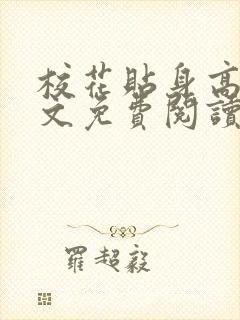 校花貼身高
文免費閱讀
羅超毅